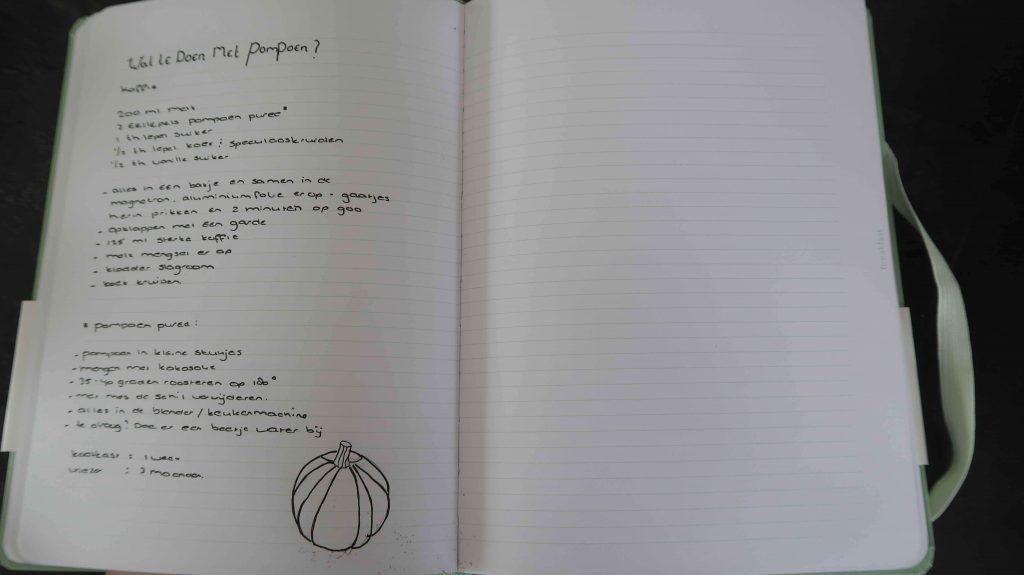 Wat te Doen Met Pompoen?
koffie
200 ml melk
2 eetlepels pompoen puree*
1 th lepel suiker
1/2 th lepel koek / speculaaskruiden
1/2 th vanille suiker
- alles in een bakje en samen in de
magnetron. aluminiumfolie erop - gaatjes
herin prikken en 2 minuten op 900
- opkloppen met een garde
- 125 ml sterke koffie
- melk mengsel er op
- kladder slagroom
- koek kruiden
* pompoen puree:
- pompoen in kleine stukjes
- mengen met kokosolie
- 35-40 graden roosteren op 180°
- met mes de schil verwijderen.
- alles in de blender / keukenmachine
- te droog? Doe er een beetje water bij
koelkast : 1 week
vriezer : 3 maanden.
breakfast